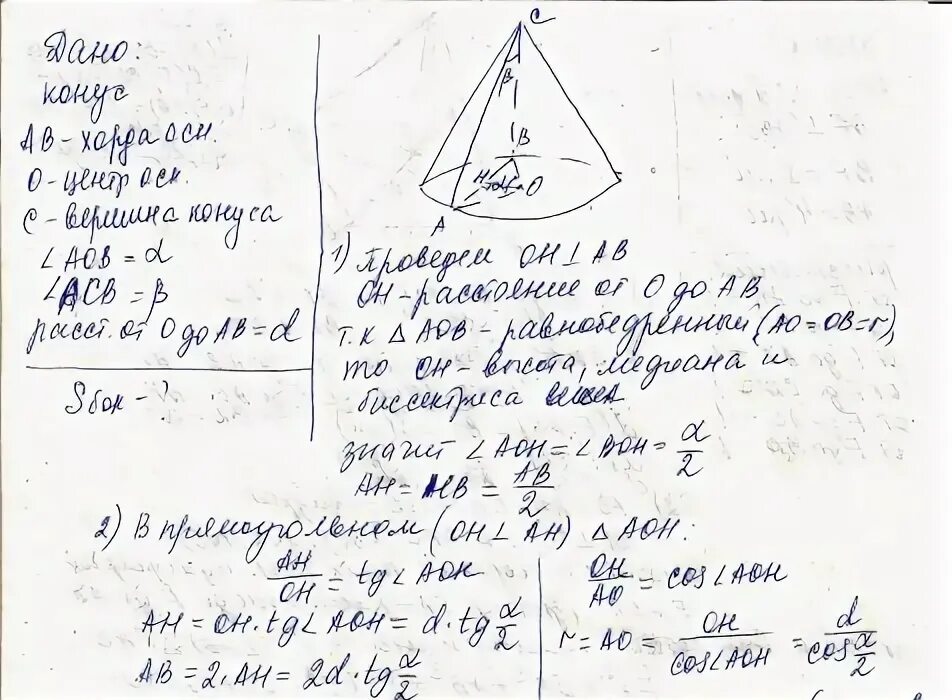 Дано:
конус
AB - хорда осн.
O - центр осн.
C - вершина конуса
∠AOB = α
∠ACB = β
расст. от O до AB = d
Sбок - ?
C
β
B
H
O
A
1) Проведем OH ⊥ AB
OH - расстояние от O до AB
т.к △ AOB - равнобедренный (AO = OB = r)
то OH - высота, медиана и
биссектриса
значит ∠AOH = ∠BOH = α/2
AH = HB = AB/2
2) В прямоугольном (OH ⊥ AH) △ AOH:
AH/OH = tg∠AOH
AH = OH · tg∠AOH = d · tg α/2
AB = 2 · AH = 2d · tg α/2
OH/AO = cos∠AOH
r = AO = OH/cos∠AOH = d/cos α/2